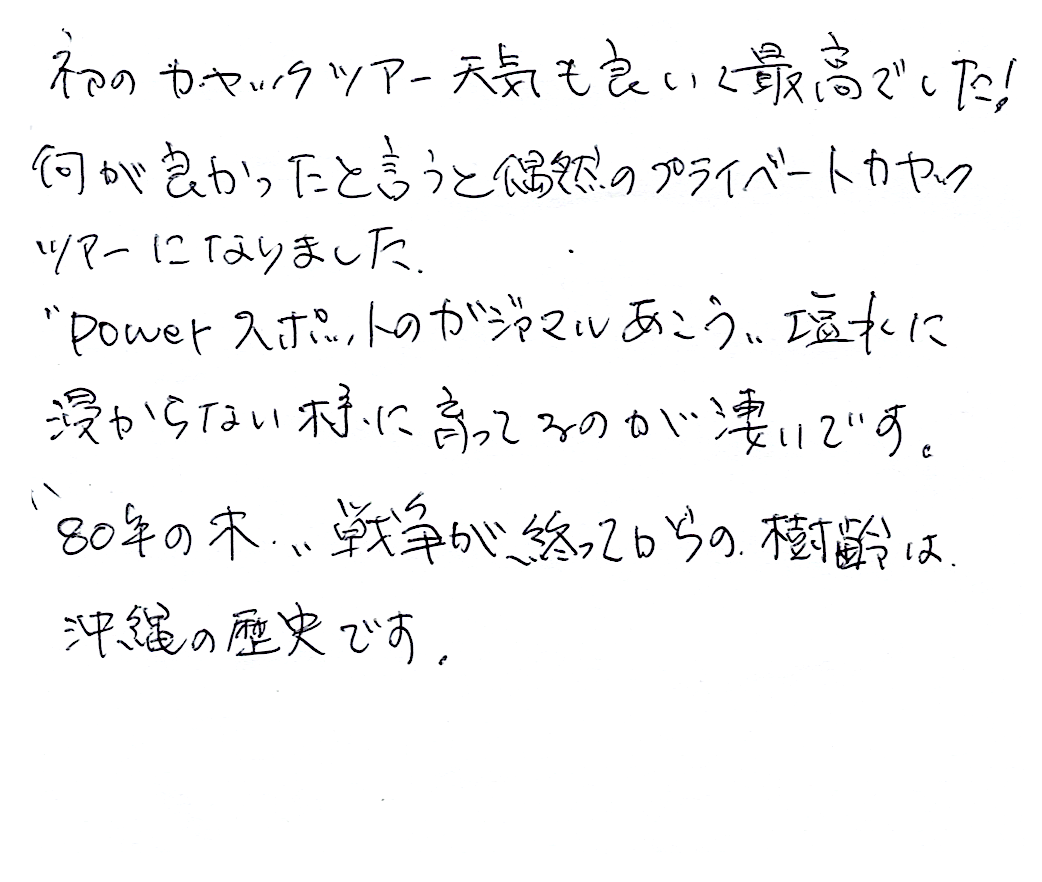 初のカヤックツアー天気も良いく最高でした!
何が良かったと言うと偶然のプライベートカヤック
ツアーになりました.
"Powerスポットのがジャマルあこう" 塩水に
浸からない様に育ってるのが凄いです。
"80年の木" 戦争が終ってからの樹齢は
沖縄の歴史です.